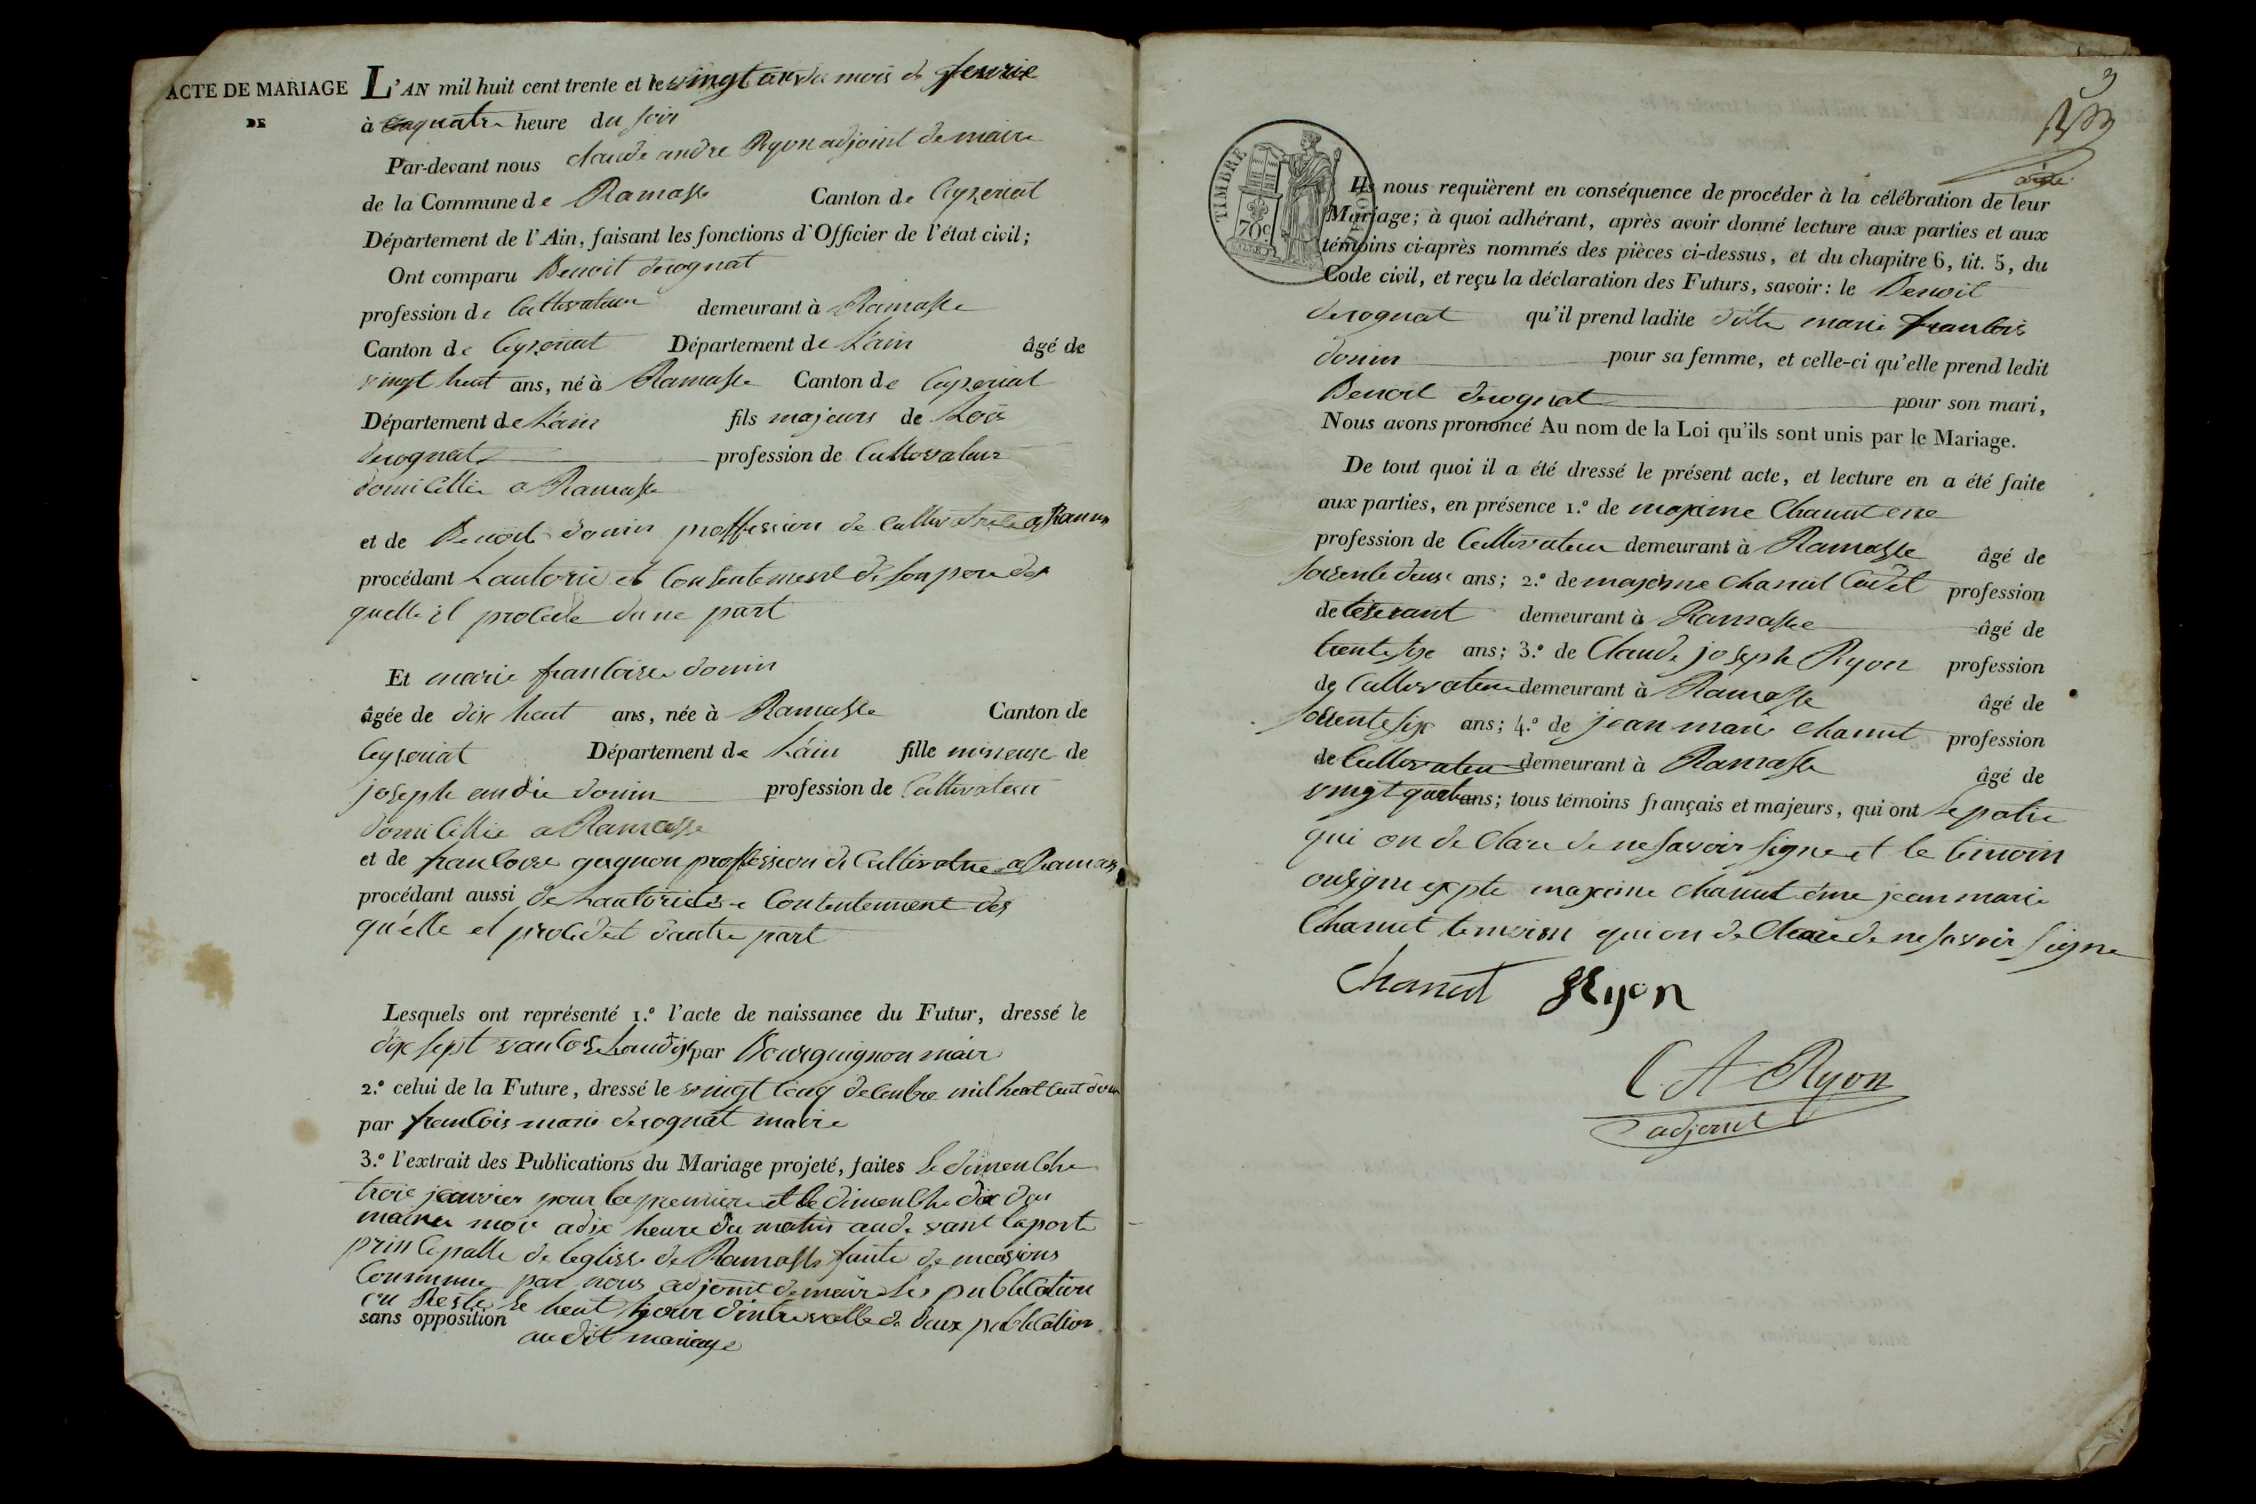 ACTE DE MARIAGE
DE
L'AN mil huit cent trente et le vingt un du mois de fevrie
à quatre heure du soir
Par-devant nous claude andre Ryon adjoint de maire
de la Commune de Ramasse Canton de Ceyzeriat
Département de l'Ain, faisant les fonctions d'Officier de l'état civil;
Ont comparu Benoit derognat
profession de Cultivateur demeurant à Ramasse
Canton de Ceyzeriat Département de Lain âgé de
vingt heut ans, né à Ramasse Canton de Ceyzeriat
Département de Lain fils majeurs de
derognat profession de Cultivateur
domicillie a Ramasse
et de Benoite donin proffession de Cultivatrice a Ramas
procédant Lautorie et Consentement de son pere des
quelle il procede dune part
Et marie francoise donin
âgée de dix heut ans, née à Ramasse Canton de
Ceyzeriat Département de Lain fille mineuse de
joseph andre donin profession de Cultivateur
domicillie a Ramasse
et de francoise gagnon proffession de Cultivatrice a Ramas
procédant aussi de Lautorite e Contentement des
quelle el procedet dautre part
Lesquels ont représenté 1.º l'acte de naissance du Futur, dressé le
dix sept par Bourguignon mair
2.º celui de la Future, dressé le vingt cinq decenbre mil heut cent
par francois marie derognat maire
3.º l'extrait des Publications du Mariage projeté, faites le dimenche
trois janvier pour la premiere et le dimenche dix du
maime mois a dix heure du matin au de vant la porte
principalle de leglisse de Ramasse faute de maisons
Commune par nous adjoint de maire les publication
le heut jour dintervalle de deux publication
sans opposition
au dit mariage
3
TIMBRE
70c
Ils nous requièrent en conséquence de procéder à la célébration de leur
Mariage; à quoi adhérant, après avoir donné lecture aux parties et aux
témoins ci-après nommés des pièces ci-dessus, et du chapitre 6, tit. 5, du
Code civil, et reçu la déclaration des Futurs, savoir: le Benoit
derognat qu'il prend ladite dite marie francois
donin pour sa femme, et celle-ci qu'elle prend ledit
Benoit derognat pour son mari,
Nous avons prononcé Au nom de la Loi qu'ils sont unis par le Mariage.
De tout quoi il a été dressé le présent acte, et lecture en a été faite
aux parties, en présence 1.º de maxime Chanut ene
profession de Cultivateur demeurant à Ramasse âgé de
soisente deux ans; 2.º de maxime chanut Cadet profession
de teserant demeurant à Ramasse âgé de
trente six ans; 3.º de Claude joseph Ryon profession
de Cultivateur demeurant à Ramasse âgé de
soisente six ans; 4.º de jean marie chanut profession
de Cultivateur demeurant à Ramasse âgé de
vingt quatre ans; tous témoins français et majeurs, qui ont
qui on de clare de ne savoir signe et le temoin
on signe exepte maxime chanut éine jean marie
Chanut temoin qui on de Clare de ne savoir signe
Chanut Ryon
C. A Ryon
adjoint